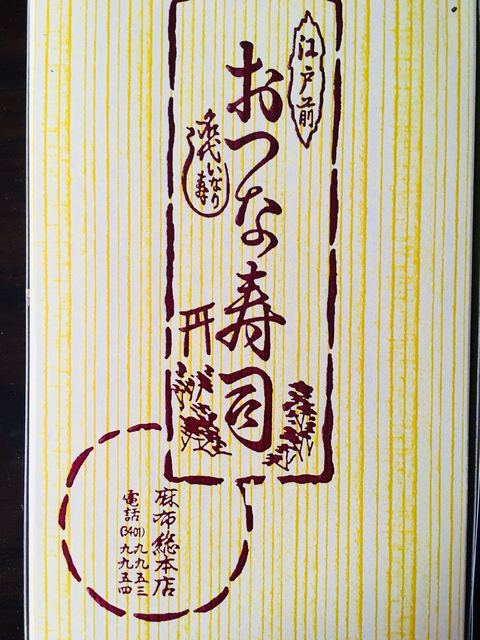 江戸前
おつな寿司
名代いなり寿司
麻布総本店
電話(3401)九九五三
九九五四